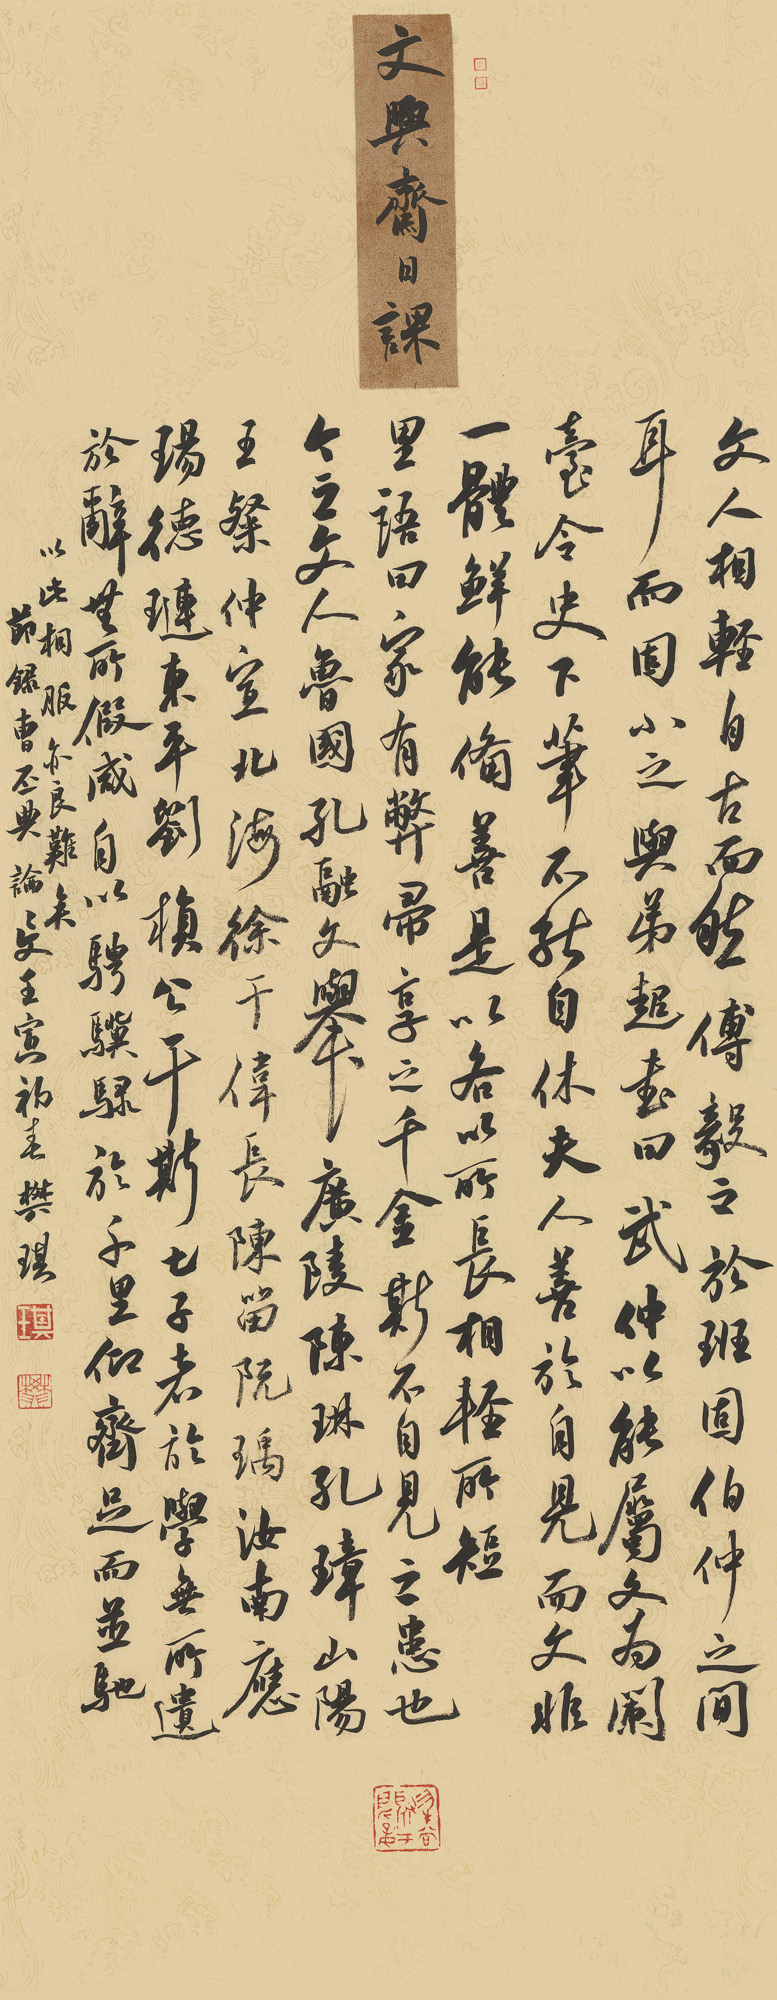 文興齋日課
文人相輕自古而然傅毅之於班固伯仲之間
耳而固小之與弟超書曰武仲以能屬文為蘭
臺令史下筆不能自休夫人善於自見而文非
一體鮮能備善是以各以所長相輕所短
里語曰家有弊帚享之千金斯不自見之患也
今之文人魯國孔融文舉廣陵陳琳孔璋山陽
王粲仲宣北海徐干偉長陳留阮瑀汝南應
瑒德璉東平劉楨公干斯七子者於學無所遺
於辭無所假咸自以騁驥騄於千里仰齊足而並馳
以此相服亦良難矣
節錄曹丕典論文壬寅初春樊琪